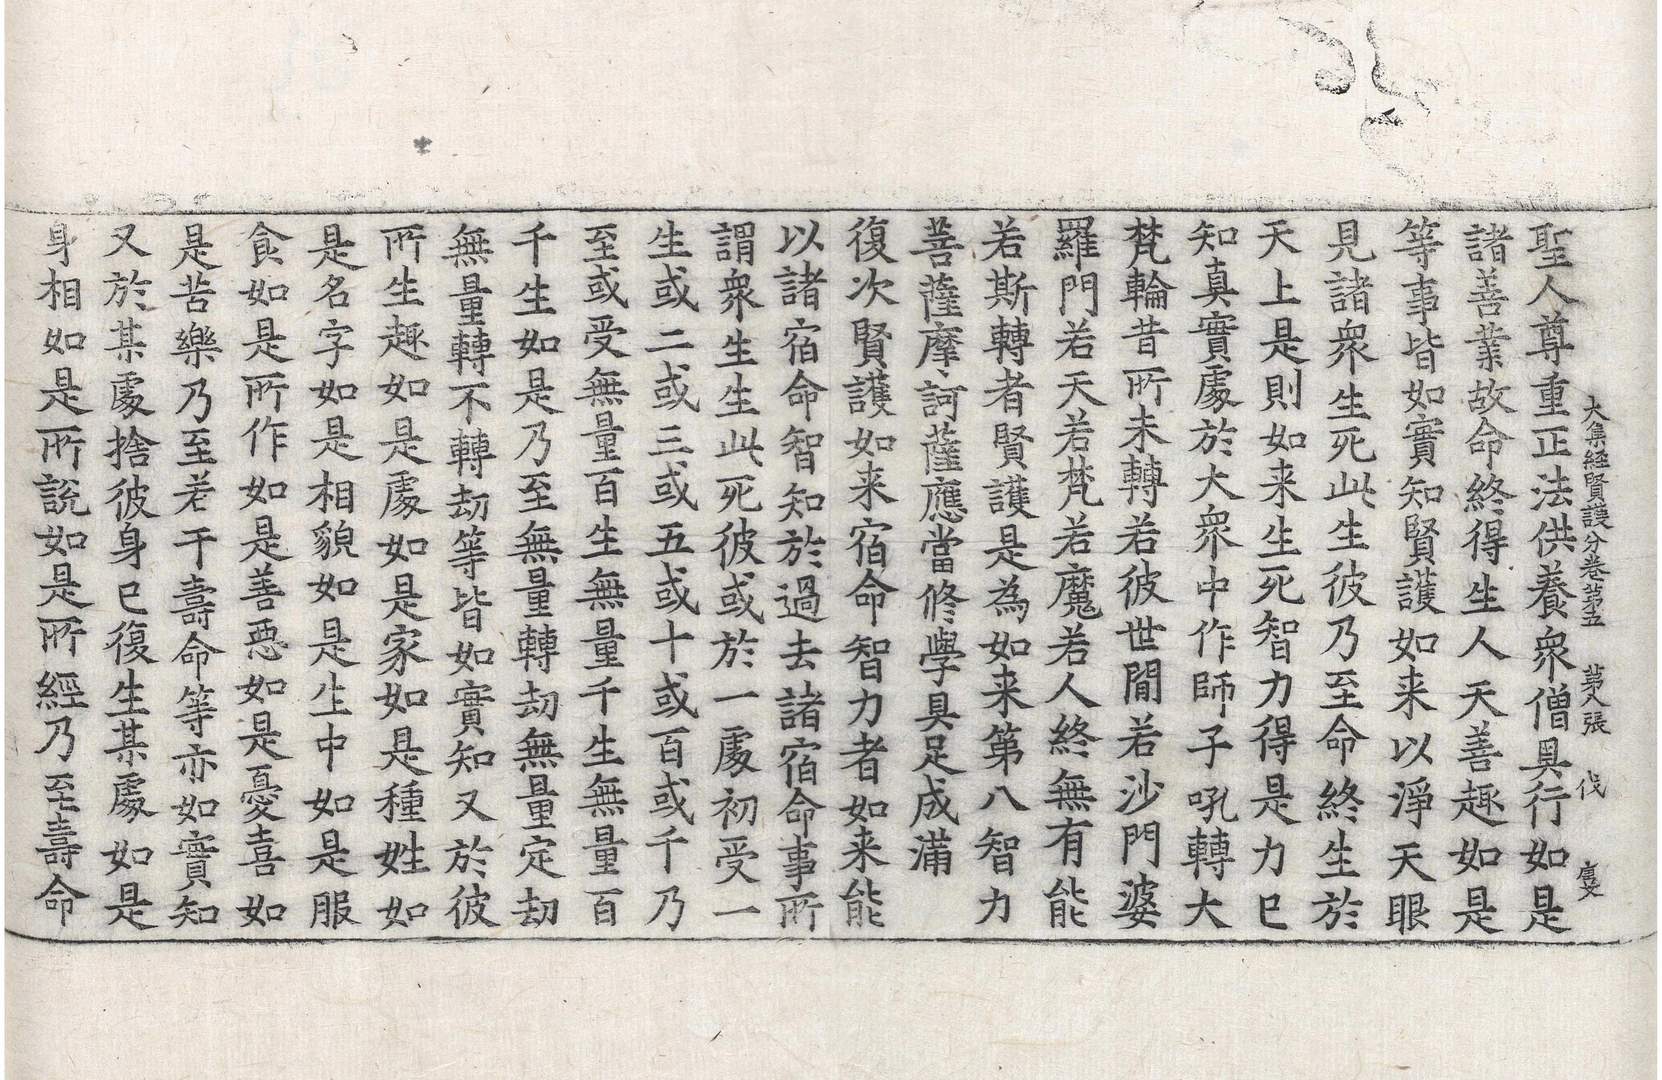 大集経賢護分卷第五　第八張　伐
聖人尊重正法供養衆僧具行如是
諸善業故命終得生人天善趣如是
等事皆如實知賢護如来以淨天眼
見諸衆生死此生彼乃至命終生於
天上是則如来生死智力得是力已
知真實處於大衆中作師子吼轉大
梵輪昔所未轉若彼世間若沙門婆
羅門若天若梵若魔若人終無有能
若斯轉者賢護是為如来第八智力
菩薩摩訶薩應當修學具足成滿
復次賢護如来宿命智力者如来能
以諸宿命智知於過去諸宿命事所
謂衆生生此死彼或於一處初受一
生或二或三或五或十或百或千乃
至或受無量百生無量千生無量百
千生如是乃至無量轉劫無量定劫
無量轉不轉劫等皆如實知又於彼
所生趣如是處如是家如是種姓如
是名字如是相貌如是生中如是服
食如是所作如是善惡如是憂喜如
是苦樂乃至若干壽命等亦如實知
又於某處捨彼身已復生某處如是
身相如是所說如是所經乃至壽命